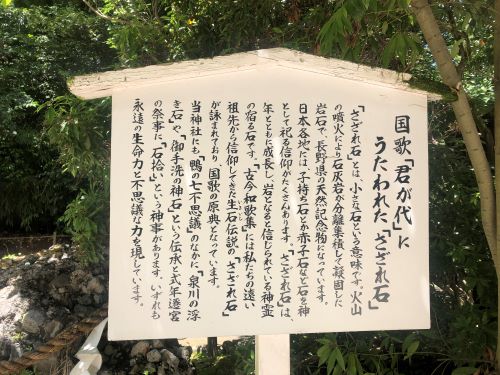 国歌「君が代」に
うたわれた「さざれ石」
「さざれ石」とは、小さな石という意味です。火山
の噴火により石灰岩が分離集積して凝固した
岩石で、長野県の天然記念物になっています。
日本各地には、子持ち石とか赤子石など石を神
として祀る信仰がたくさんあります。さざれ石」は、
年とともに成長し、岩となると信じられている神霊
の宿る石です。「古今和歌集」には私たちの遠い
祖先から信仰してきた生石伝説の「さざれ石」
が詠まれており、国歌の原典となっています。
当神社にも、「鴨の七不思議」のなかに、「泉川の浮
き石」や、「御手洗の神石」という伝承と式年遷宮
の祭事に「石拾い」という神事があります。いずれも
永遠の生命力と不思議な力を現しています。